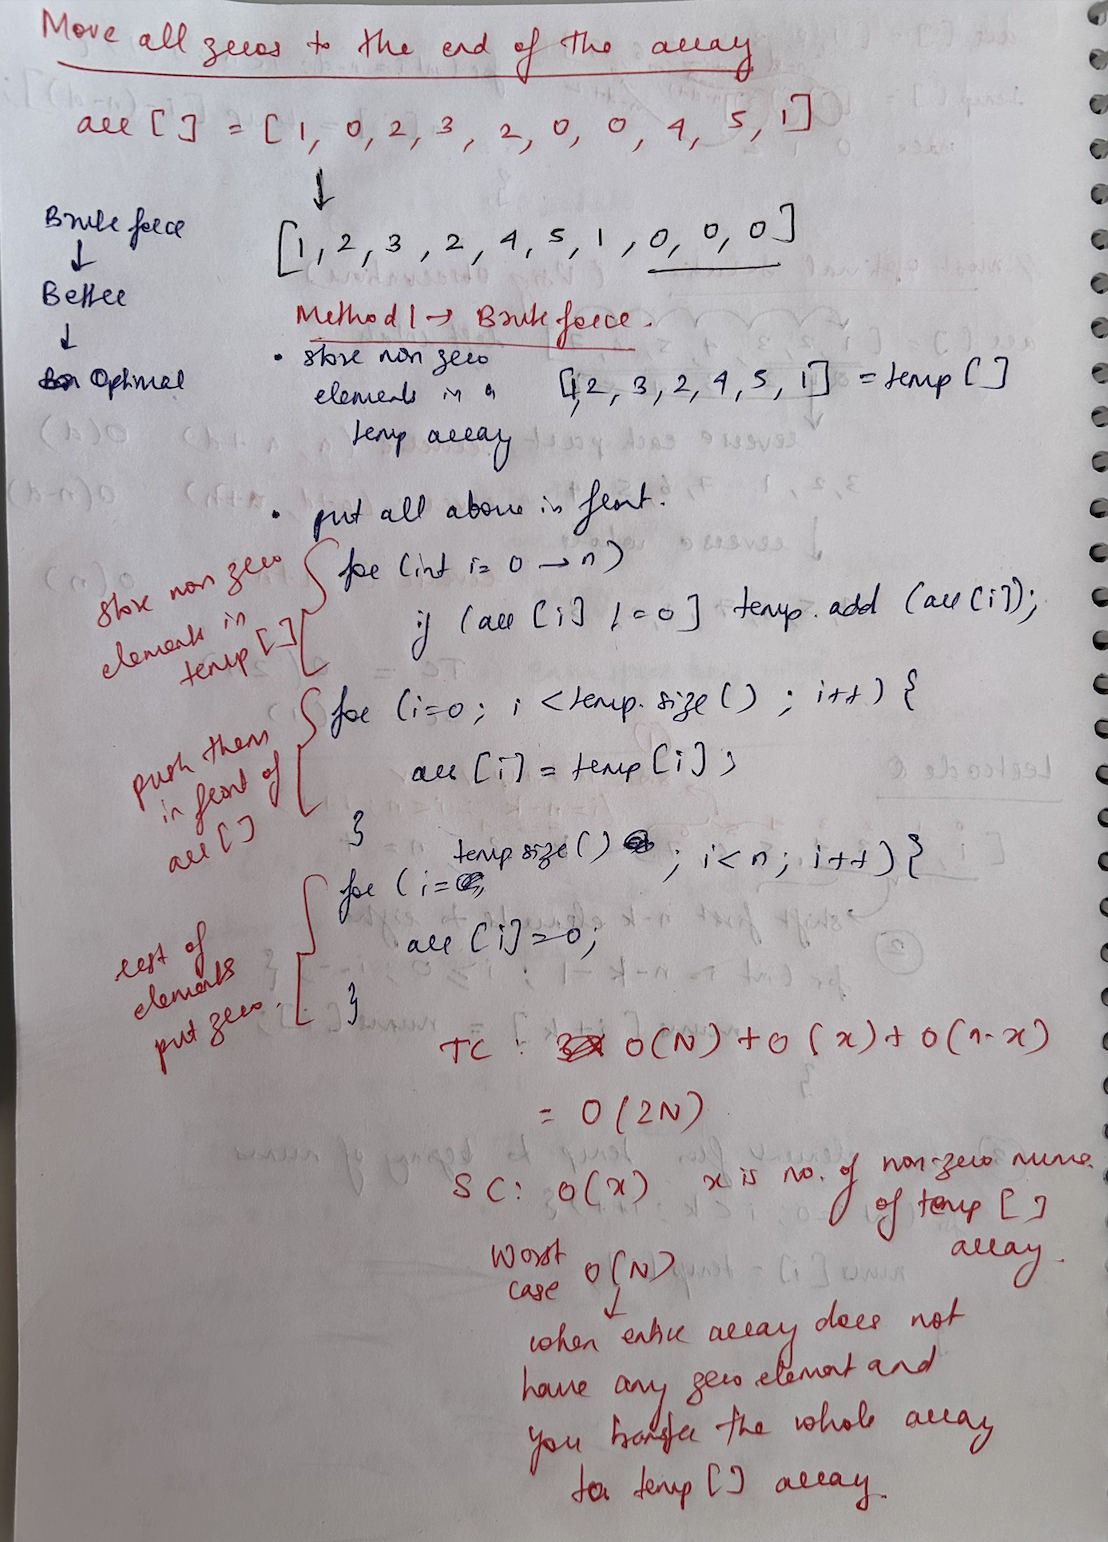 Move all zeros to the end of the array
arr [ ] = [ 1, 0, 2, 3, 2, 0, 0, 4, 5, 1]
↓
[1, 2, 3, 2, 4, 5, 1, 0, 0, 0]
Brute force
↓
Better
↓
Optimal
Method 1 → Brute force.
• store non zero
elements in a
temp array
[1, 2, 3, 2, 4, 5, 1] = temp [ ]
• put all above in front.
store non zero
elements in
temp [ ]
for (int i = 0 → n)
if (arr [i] != 0] temp. add (arr [i]);
push them
in front of
arr [ ]
for (i=0; i < temp. size ( ) ; i++) {
arr [i] = temp [i];
}
rest of
elements
put zero.
for (i= temp size ( ) ; i<n; i++) {
arr [i] = 0;
}
TC : O(N) + O (x) + O (n-x)
= O (2N)
SC: O(x) x is no. of non-zero nums
of temp [ ]
array.
Worst
case O(N)
↓
when entire array does not
have any zero element and
you transfer the whole array
to temp [ ] array.